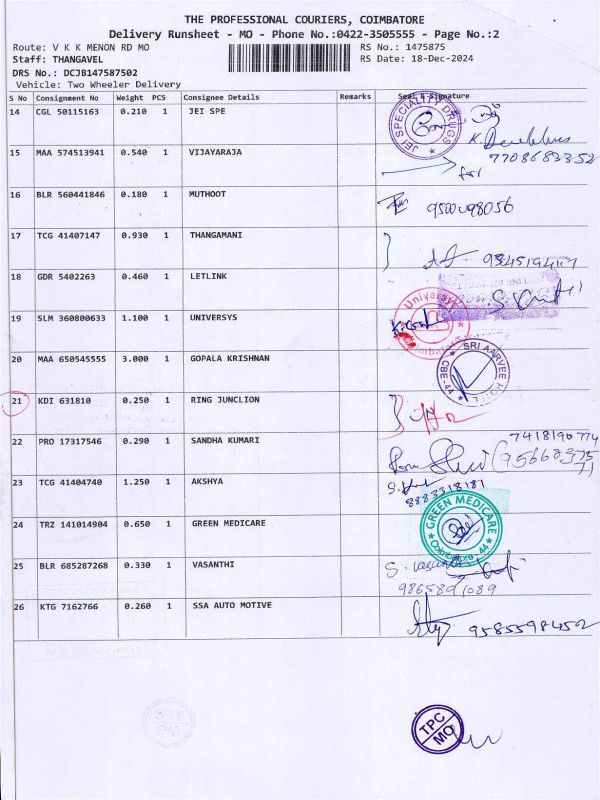 THE PROFESSIONAL COURIERS, COIMBATORE
Delivery Runsheet - MO - Phone No.:0422-3505555 - Page No.:2
Route: V K K MENON RD MO RS No.: 1475875
Staff: THANGAVEL RS Date: 18-Dec-2024
DRS No.: DCJB147587502
Vehicle: Two Wheeler Delivery
S No Consignment No Weight PCS Consignee Details Remarks Seal & Signature
14 CGL 50115163 0.210 1 JEI SPE
JEI SPECIALITY DRUGS
15 MAA 574513941 0.540 1 VIJAYARAJA
7708683352
for
16 BLR 560441846 0.180 1 MUTHOOT
9500098056
17 TCG 41407147 0.930 1 THANGAMANI
18 GDR 5402263 0.460 1 LETLINK
19 SLM 360800633 1.100 1 UNIVERSYS
Universys
Coimbatore
20 MAA 650545555 3.000 1 GOPALA KRISHNAN
SRI AARVEE HOTEL
CBE-44
21 KDI 631810 0.250 1 RING JUNCLION
22 PRO 17317546 0.290 1 SANDHA KUMARI
7418190774
23 TCG 41404740 1.250 1 AKSHYA
8883318181
24 TRZ 141014904 0.650 1 GREEN MEDICARE
GREEN MEDICARE
Coimbatore-44
25 BLR 685287268 0.330 1 VASANTHI
9865891089
26 KTG 7162766 0.260 1 SSA AUTO MOTIVE
9585598452
TPC
MO